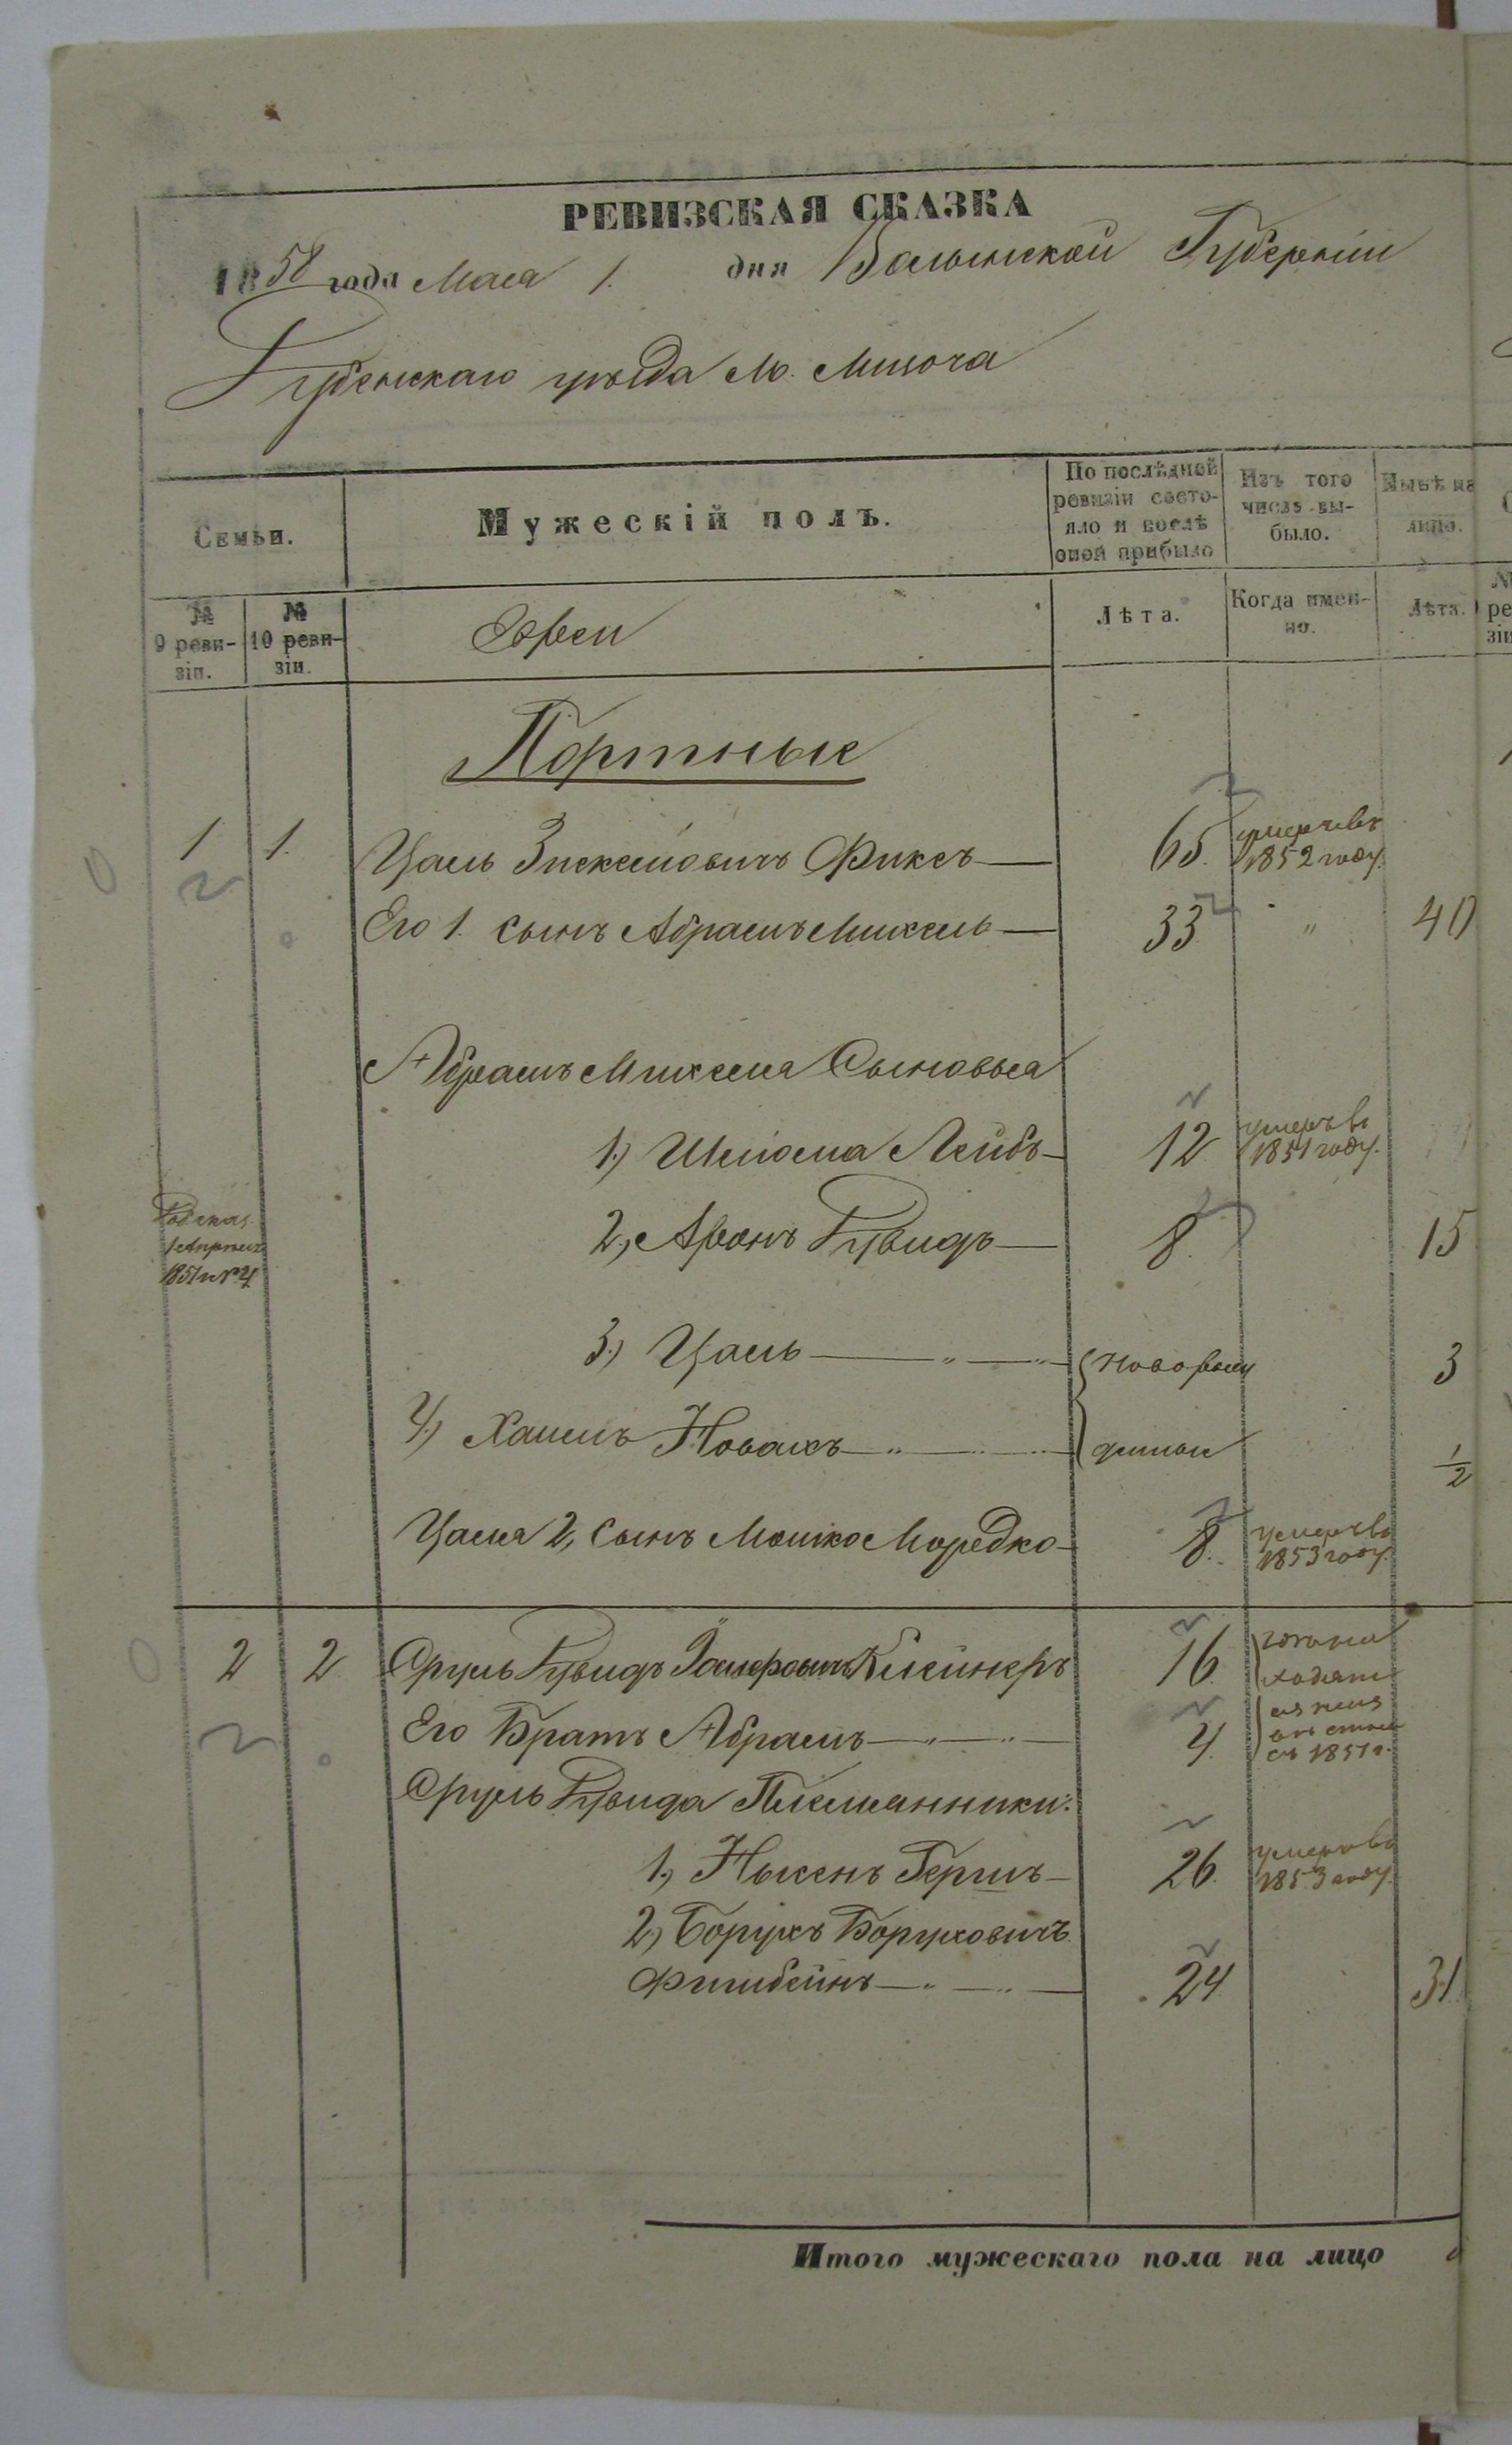 РЕВИЗСКАЯ СКАЗКА
1858 года Мая 1. дня Волынской Губерніи
Дубенскаго уѣзда М. Мизоча
Семьи.
Мужескій полъ.
По послѣдней ревизіи состо-
яло и послѣ оной прибыло
Изъ того числа вы-
было.
Нынѣ на лицо.
№ 9 реви-
зіи.
№ 10 реви-
зіи.
Евреи
Лѣта.
Когда имен-
но.
Лѣта.
Портные
1 1. Цаль Зискелiовичъ Фиксъ 65. умеръ въ 1852 году.
Его 1. сынъ Абрамъ Михель 33 " 40
Абрамъ Михеля Сыновья
1.) Шліома Лейбъ 12 умеръ въ 1851 году.
2,) Аронъ Дувидъ 8. 15
1851
3.) Цаль " " новорож 3
4.) Хаимъ " " денные 1/2
Цаля 2, сынъ Мошко Мордко 8. умеръ въ 1853 году.
2 2 Сруль Дувидъ Клейнеръ 16.
Его Братъ Абрамъ " " 4. съ 1851 г.
Сруль Дувида Племянники:
1.) Гершъ 26. умеръ въ 1853 году.
2.) Борухъ Боруховичъ
Фишбейнъ " " 24 31.
Итого мужескаго пола на лицо